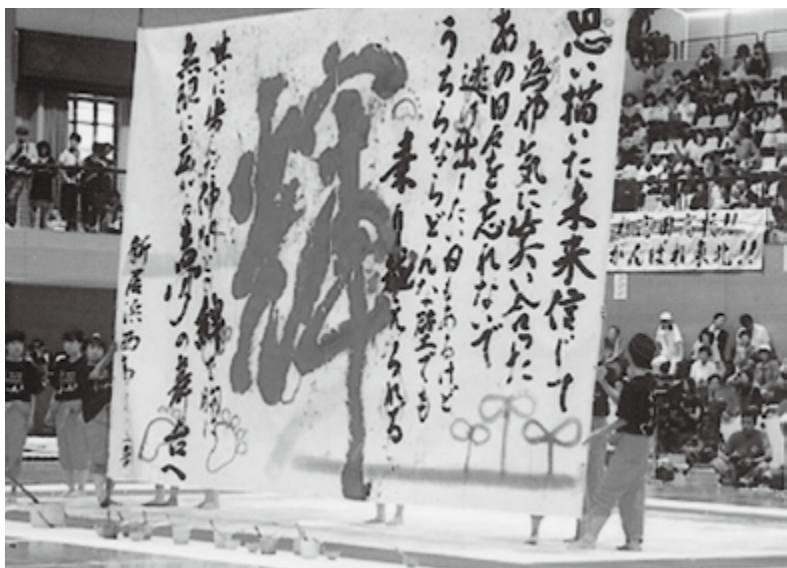 思い描いた未来信じて
無邪気に笑い合った
あの日々を忘れないで
逃げ出した、日もあるけど
うちらならどんな壁でも
乗り越えられる
輝
共に歩んだ仲間との絆を胸に
無限に広がる夢の舞台へ
新居浜西高
がんばれ東北!!